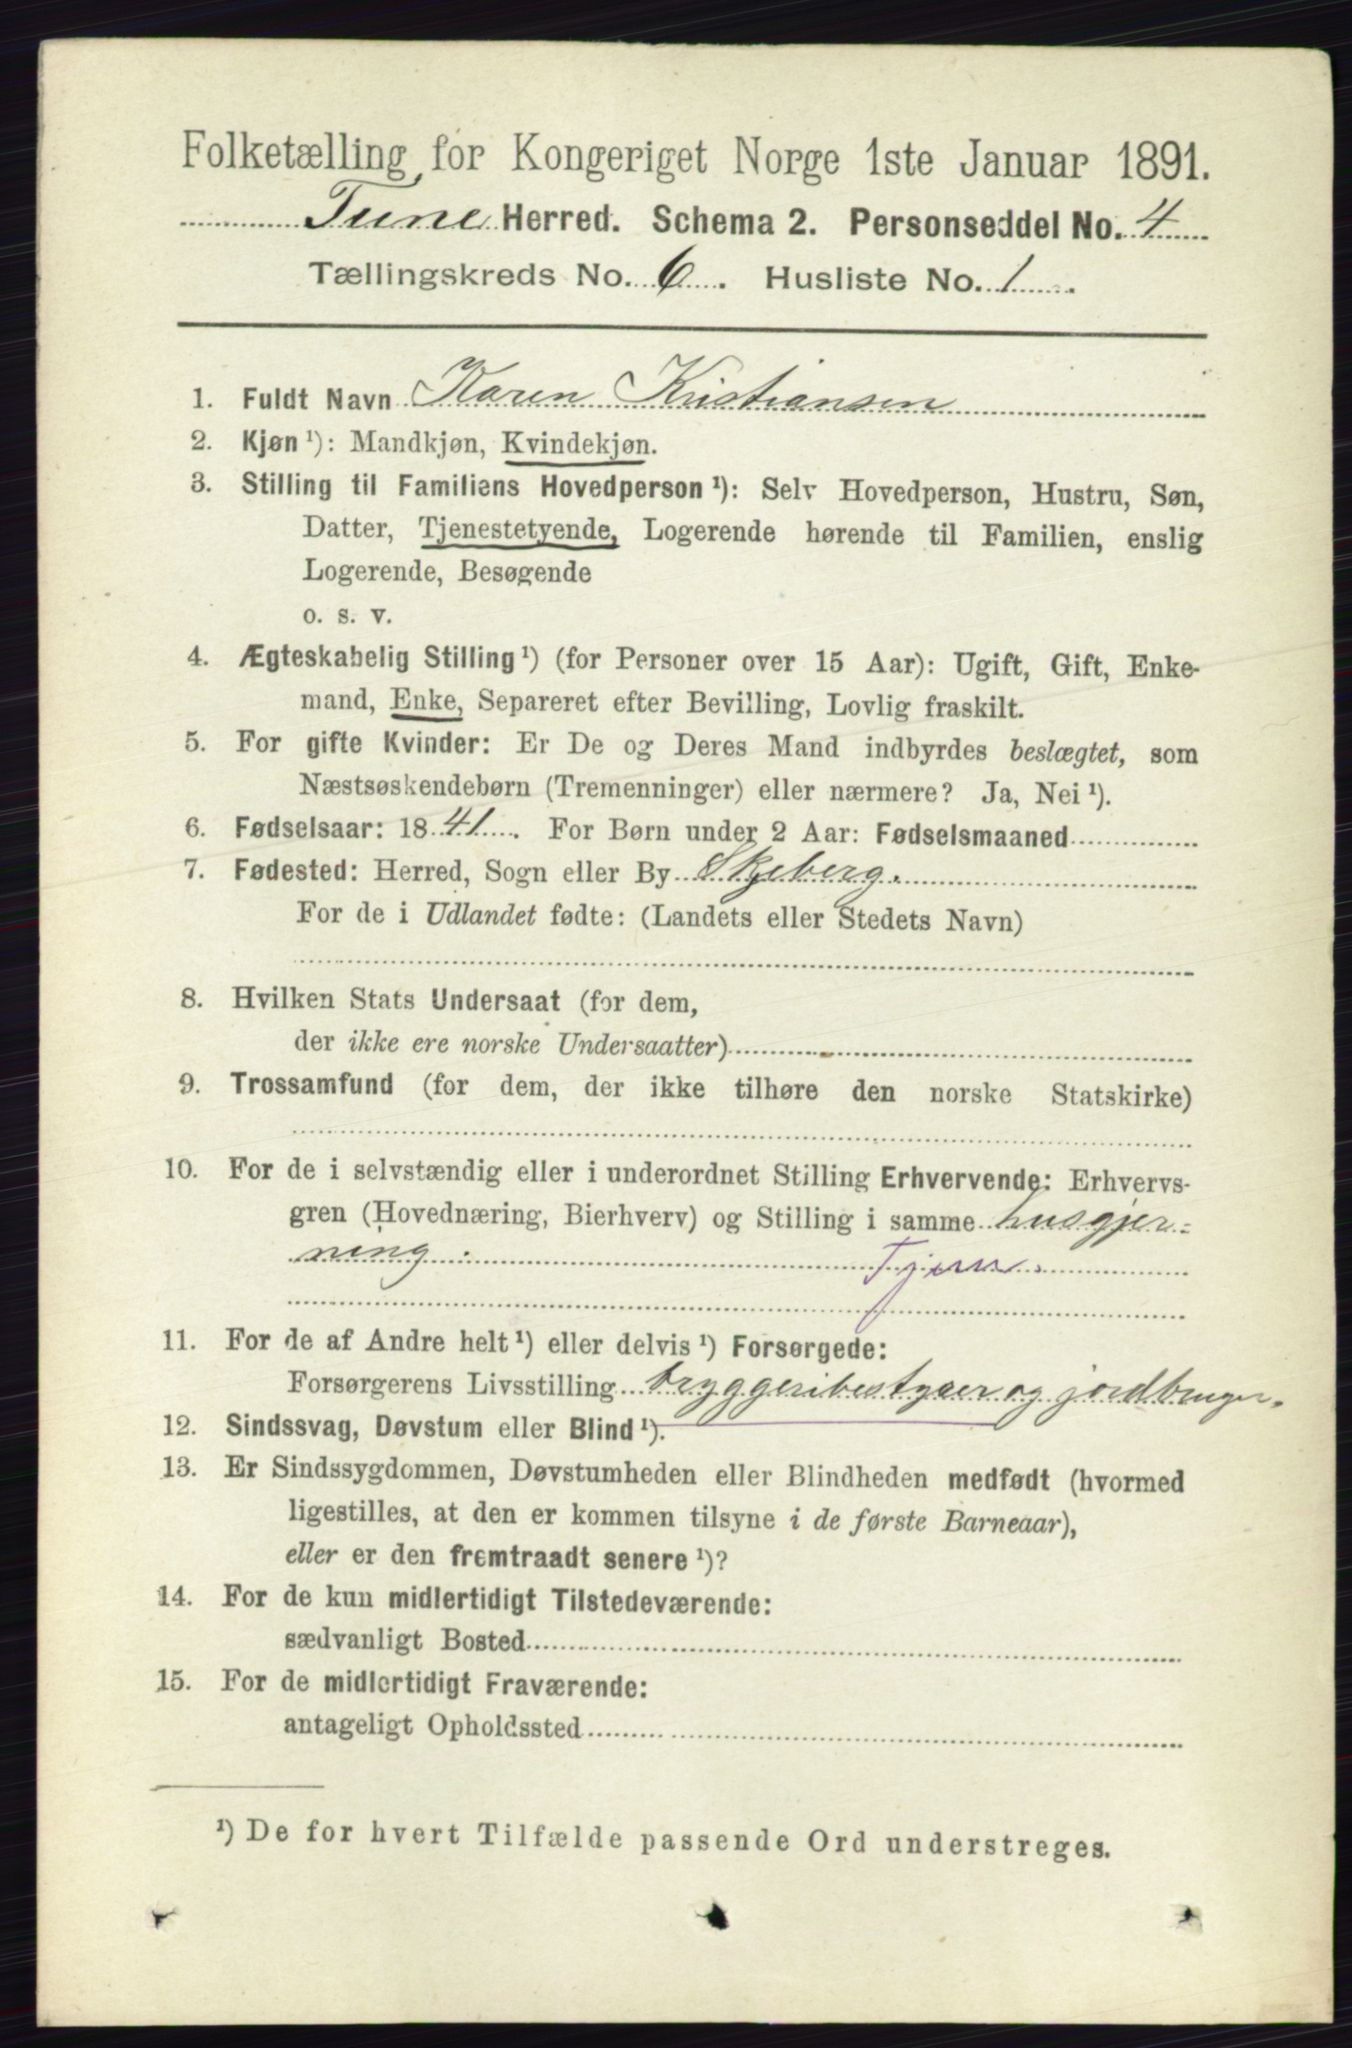 Folketælling for Kongeriget Norge 1ste Januar 1891.
Tune Herred. Schema 2. Personseddel No. 4
Tællingskreds No. 6. Husliste No. 1.
1. Fuldt Navn Karen Kristiansen
2. Kjøn ¹): Mandkjøn, Kvindekjøn.
3. Stilling til Familiens Hovedperson ¹): Selv Hovedperson, Hustru, Søn,
Datter, Tjenestetyende, Logerende hørende til Familien, enslig
Logerende, Besøgende
o. s. v.
4. Ægteskabelig Stilling ¹) (for Personer over 15 Aar): Ugift, Gift, Enke-
mand, Enke, Separeret efter Bevilling, Lovlig fraskilt.
5. For gifte Kvinder: Er De og Deres Mand indbyrdes beslægtet, som
Næstsøskendebørn (Tremenninger) eller nærmere? Ja, Nei ¹).
6. Fødselsaar: 1841. For Børn under 2 Aar: Fødselsmaaned
7. Fødested: Herred, Sogn eller By Skjeberg.
For de i Udlandet fødte: (Landets eller Stedets Navn)
8. Hvilken Stats Undersaat (for dem,
der ikke ere norske Undersaatter)
9. Trossamfund (for dem, der ikke tilhøre den norske Statskirke)
10. For de i selvstændig eller i underordnet Stilling Erhvervende: Erhvervs-
gren (Hovednæring, Bierhverv) og Stilling i samme husgjer-
ning. Tjen.
11. For de af Andre helt ¹) eller delvis ¹) Forsørgede:
Forsørgerens Livsstilling bryggeribestyrer og jordbruger.
12. Sindssvag, Døvstum eller Blind ¹).
13. Er Sindssygdommen, Døvstumheden eller Blindheden medfødt (hvormed
ligestilles, at den er kommen tilsyne i de første Barneaar),
eller er den fremtraadt senere ¹)?
14. For de kun midlertidigt Tilstedeværende:
sædvanligt Bosted
15. For de midlertidigt Fraværende:
antageligt Opholdssted
¹) De for hvert Tilfælde passende Ord understreges.